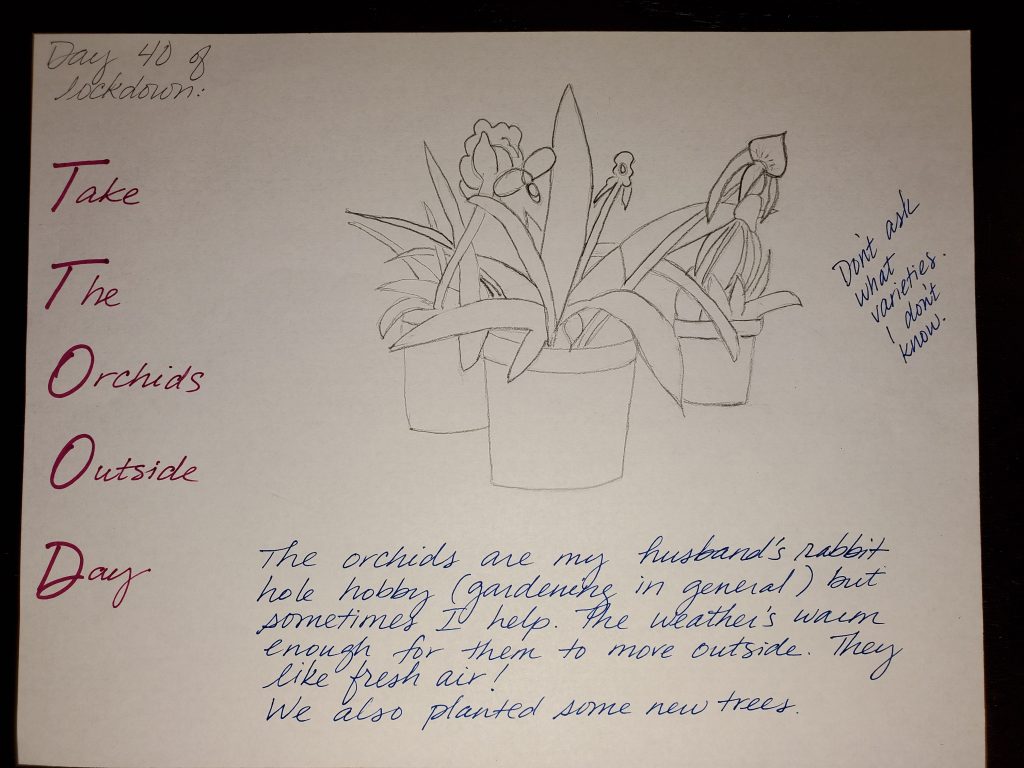 Day 40 of
lockdown:
Take
The
Orchids
Outside
Day
Don't ask
what
varieties.
I don't
know.
The orchids are my husband's rabbit
hole hobby (gardening in general) but
sometimes I help. The weather's warm
enough for them to move outside. They
like fresh air!
We also planted some new trees.